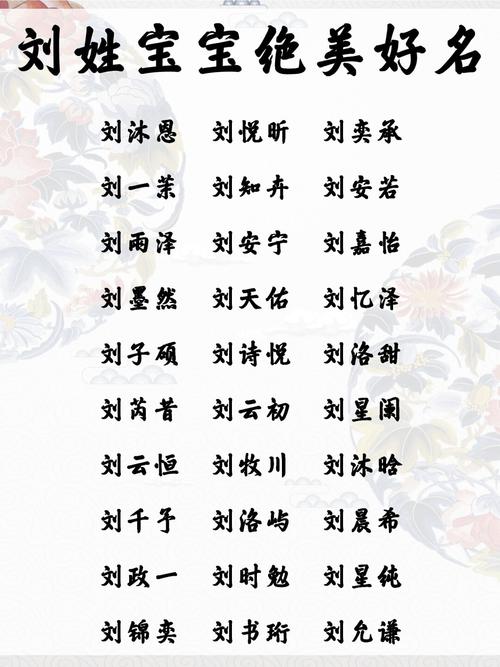 刘姓宝宝绝美好名
刘沐恩 刘悦昕 刘奕承
刘一茉 刘知卉 刘安若
刘雨泽 刘安宁 刘嘉怡
刘墨然 刘天佑 刘忆泽
刘子硕 刘诗悦 刘洛甜
刘芮昔 刘云初 刘星阑
刘云恒 刘牧川 刘沐晗
刘千予 刘洛屿 刘晨希
刘政一 刘时勉 刘星纯
刘锦奕 刘书珩 刘允谦